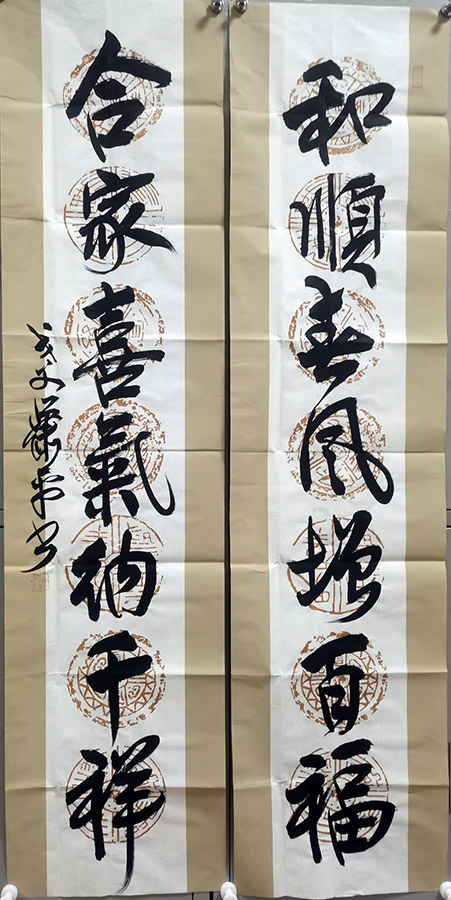 和順春風增百福
合家喜氣納千祥